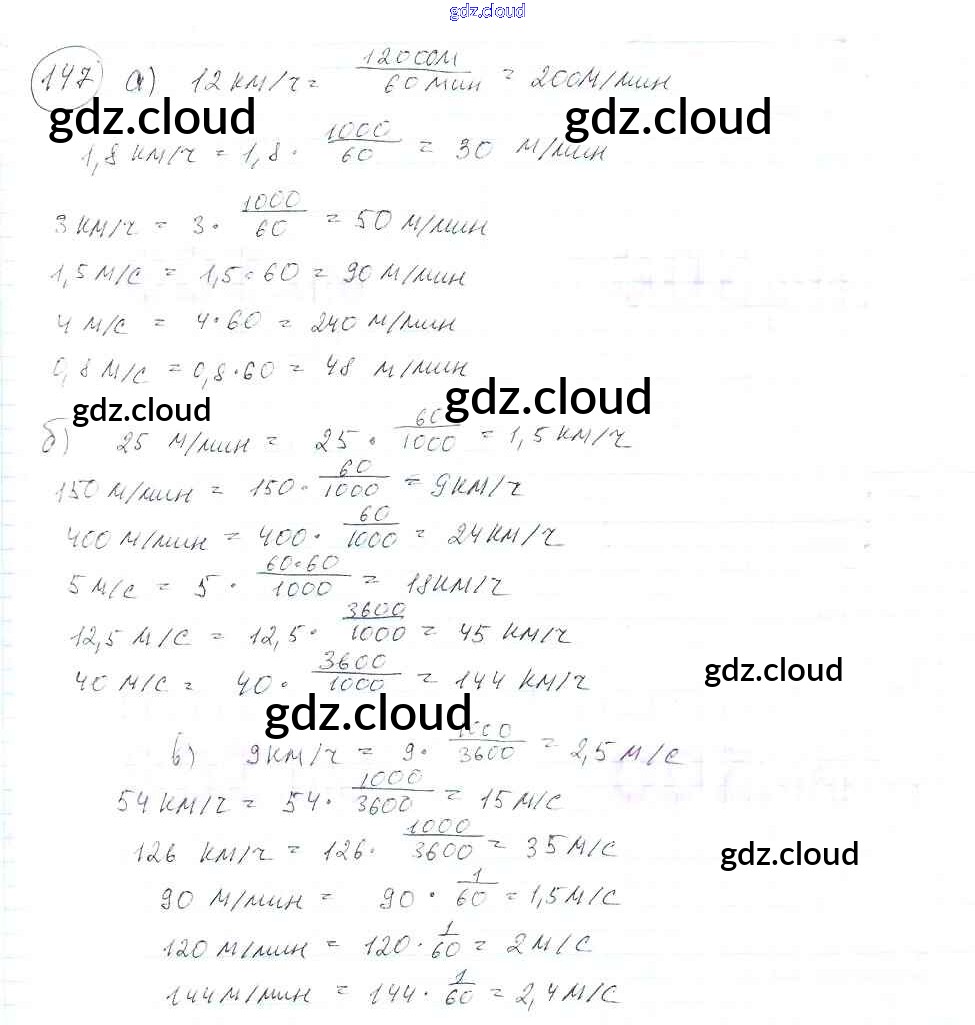 gdz.cloud
147 а) 12 км/ч = 12000м/60 мин = 200 м/мин
gdz.cloud gdz.cloud
1,8 км/ч = 1,8 · 1000/60 = 30 м/мин
3 км/ч = 3 · 1000/60 = 50 м/мин
1,5 м/с = 1,5 · 60 = 90 м/мин
4 м/с = 4 · 60 = 240 м/мин
0,8 м/с = 0,8 · 60 = 48 м/мин
gdz.cloud gdz.cloud
б) 25 м/мин = 25 · 60/1000 = 1,5 км/ч
150 м/мин = 150 · 60/1000 = 9 км/ч
400 м/мин = 400 · 60/1000 = 24 км/ч
5 м/с = 5 · 60·60/1000 = 18 км/ч
12,5 м/с = 12,5 · 3600/1000 = 45 км/ч
40 м/с = 40 · 3600/1000 = 144 км/ч
gdz.cloud
gdz.cloud
в) 9 км/ч = 9 · 1000/3600 = 2,5 м/с
54 км/ч = 54 · 1000/3600 = 15 м/с
126 км/ч = 126 · 1000/3600 = 35 м/с
gdz.cloud
90 м/мин = 90 · 1/60 = 1,5 м/с
120 м/мин = 120 · 1/60 = 2 м/с
144 м/мин = 144 · 1/60 = 2,4 м/с